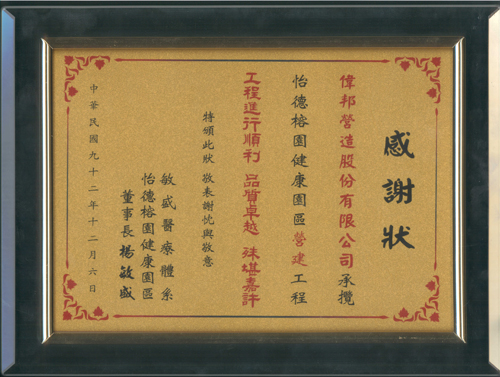 感謝狀
偉邦營造股份有限公司承攬
怡德榕園健康園區營建工程
工程進行順利 品質卓越 殊堪嘉許
特頒此狀 敬表謝忱與敬意
敏盛醫療體系
怡德榕園健康園區
董事長 楊敏盛
中華民國九十二年十二月六日